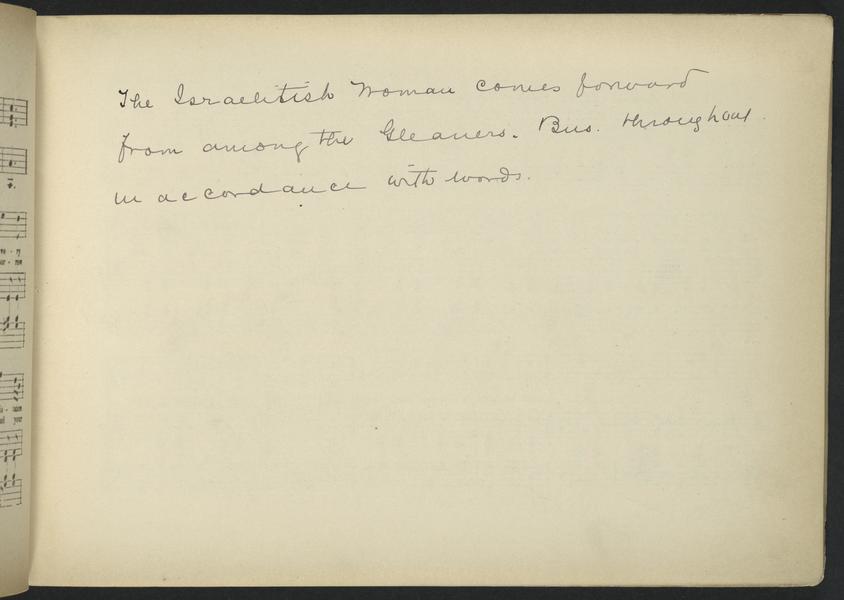 The Israelitish Woman comes forward
from among the Gleaners. Bus. throughout
in accordance with words.